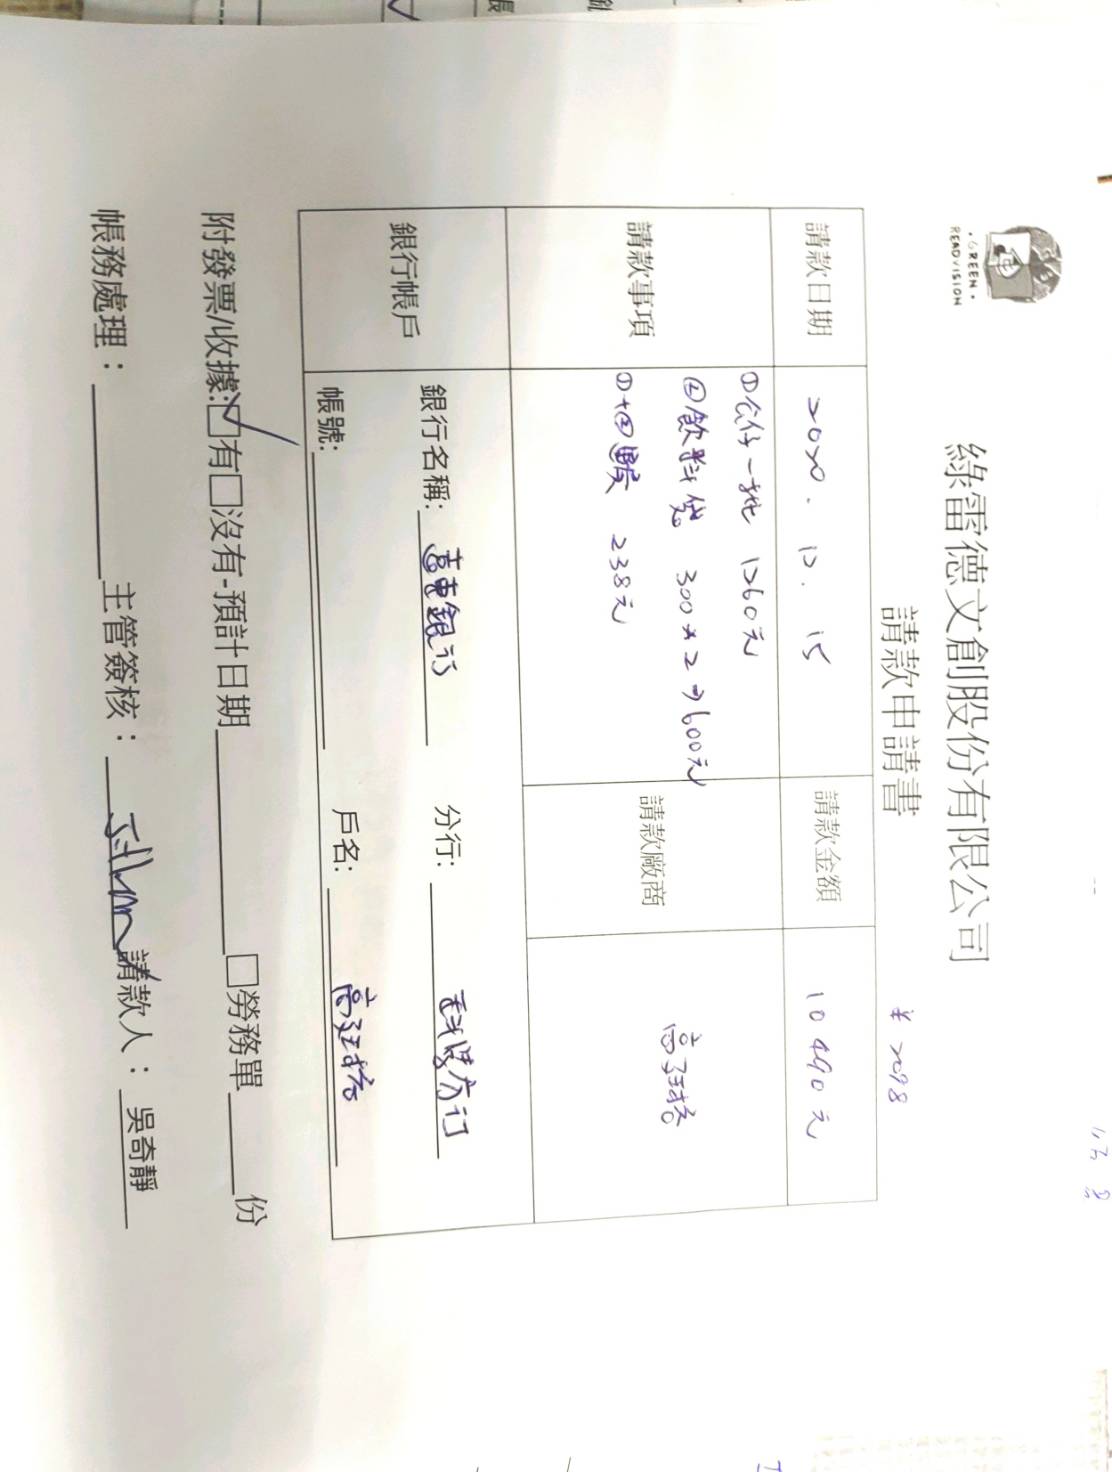 GREEN
READVISION
綠雷德文創股份有限公司
請款申請書
¥ 2098
請款日期
2020. 12. 15
請款金額
10490元
請款事項
①公仔一批 1260元
②飲料袋 300×2⇒600元
238元
請款廠商
銀行帳戶
銀行名稱:
分行:
帳號:
戶名:
附發票/收據:□有□沒有-預計日期 □勞務單 份
帳務處理: 主管簽核: 請款人: 吳奇靜